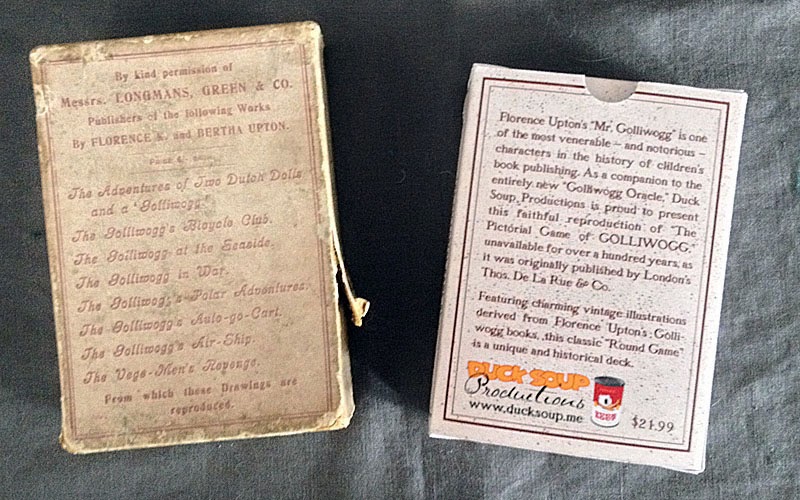 By kind permission of
Messrs. LONGMANS, GREEN & CO.
Publishers of the following Works
By FLORENCE K. and BERTHA UPTON.
The Adventures of Two Dutch Dolls
and a 'Golliwogg'.
The Golliwogg's Bicycle Club.
The Golliwogg at the Seaside.
The Golliwogg in War.
The Golliwogg's Polar Adventures.
The Golliwogg's Auto-go-Cart.
The Golliwogg's Air-Ship.
The Vege-Men's Revenge.
From which these Drawings are
reproduced.
Florence Upton's "Mr. Golliwogg" is one
of the most venerable – and notorious –
characters in the history of children's
book publishing. As a companion to the
entirely new "Golliwogg Oracle," Duck
Soup Productions is proud to present
this faithful reproduction of "The
Pictorial Game of GOLLIWOGG,"
unavailable for over a hundred years, as
it was originally published by London's
Thos. De La Rue & Co.
Featuring charming vintage illustrations
derived from Florence Upton's Golli-
wogg books, this classic "Round Game"
is a unique and historical deck.
DUCK SOUP
Productions
www.ducksoup.me
$24.99